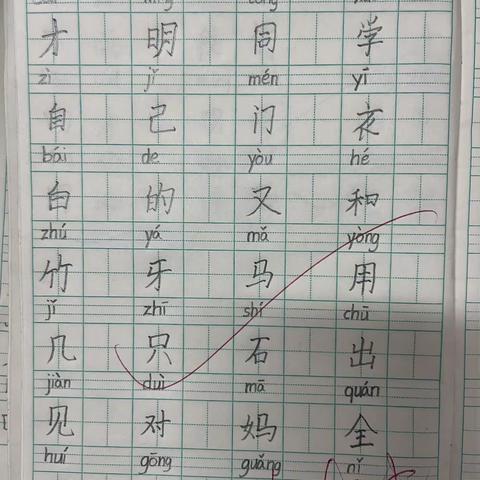 才 明 同 学
zì jǐ mén yī
自 己 门 衣
bái de yòu hé
白 的 又 和
zhú yá mǎ yòng
竹 牙 马 用
jǐ zhī shí chū
几 只 石 出
jiàn duì mā quán
见 对 妈 全
huí gōng guǎng nǐ